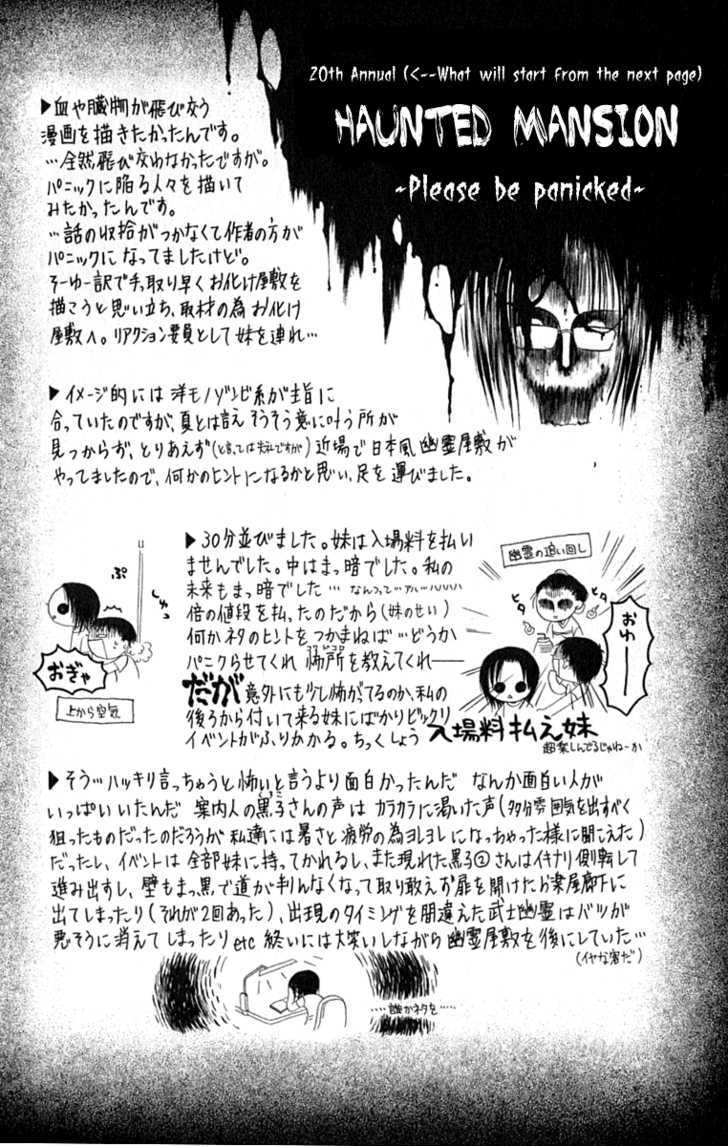 20th Annual (<--What will start from the next page)
HAUNTED MANSION
~Please be panicked~
▶血や臓物が飛び交う
漫画を描きたかったんです。
…全然飛び交わなかったですが。
パニックに陥る人々を描いて
みたかったんです。
…話の収拾がつかなくて作者の方が
パニックになってましたけど。
そーゆー訳で手っ取り早くお化け屋敷を
描こうと思い立ち、取材の為お化け
屋敷へ。リアクション要員として妹を連れ…
▶イメージ的には洋モノゾンビ系が主旨に
合っていたのですが、夏とは言えそうそう意に叶う所が
見つからず、とりあえず(と言っては失礼ですが)近場で日本風幽霊屋敷が
やってましたので、何かのヒントになるかと思い、足を運びました。
▶30分並びました。妹は入場料を払い
ませんでした。中はまっ暗でした。私の
未来もまっ暗でした…なんつって
倍の値段を払ったのだから(妹のせい)
何かネタのヒントをつかまねば…どうか
パニクらせてくれ 怖所を教えてくれ——
だが 意外にも少し怖がってるのか、私の
後ろから付いて来る妹にばかりビックリ
イベントがふりかかる。ちっくしょう
入場料払え妹
超楽しんでるじゃねーか
ぷ
しゅっ
おぎゃ
上から空気
幽霊の追い回し
ヒタ
ヒタ
おゆーー
▶そう…ハッキリ言っちゃうと怖いと言うより面白かったんだ なんか面白い人が
いっぱいいたんだ 案内人の黒子さんの声はカラカラに渇いた声(多分雰囲気を出すべく
狙ったものだったのだろうが私達には暑さと疲労の為ヨレヨレになっちゃった様に聞こえた)
だったし、イベントは全部妹に持ってかれるし、また現れた黒子②さんはイキナリ側転して
進み出すし、壁もまっ黒で道が判んなくなって取り敢えず扉を開けたら楽屋廊下に
出てしまったり(それが2回あった)、出現のタイミングを間違えた武士幽霊はバツが
悪そうに消えてしまったりetc 終いには大笑いしながら幽霊屋敷を後にしていた…
(イヤな客だ)
……誰かネタを……